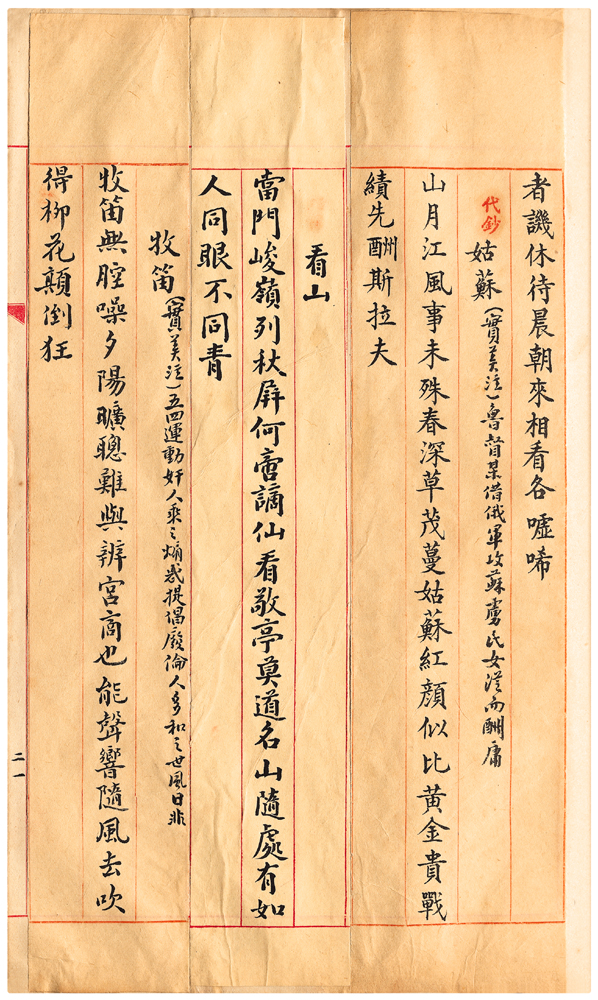 者譏休待晨朝來相看各噓唏
代鈔
姑蘇(實美注)魯督某借俄軍攻蘇虜民女從而酬庸
山月江風事未殊春深草茂蔓姑蘇紅顏似比黃金貴戰
績先酬斯拉夫
看山
當門峻嶺列秋屏何啻謫仙看敬亭莫道名山隨處有如
人同眼不同青
牧笛(實美注)五四運動奸人乘之煽惑提倡廢倫人多和之世風日非
牧笛無腔噪夕陽曠聰難與辨宮商也能聲響隨風去吹
得柳花顛倒狂
二一